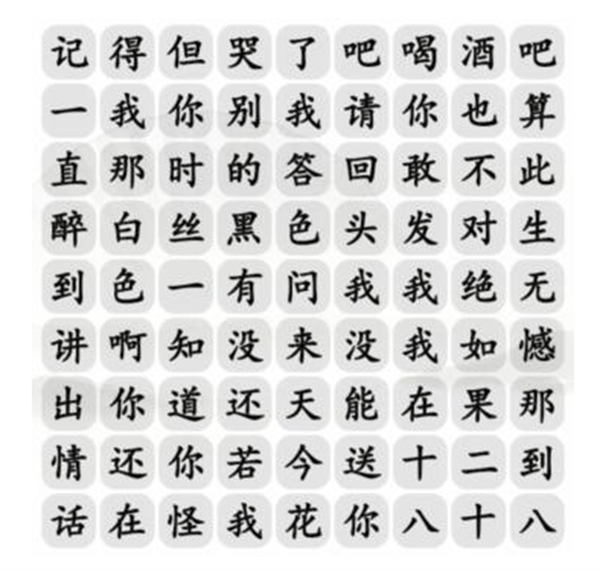 记得但哭了吧喝酒吧
一我你别我请你也算
直那时的答回敢不此
醉白丝黑色头发对生
到色一有问我我绝无
讲啊知没来没我如憾
出你道还天能在果那
情还你若今送十二到
话在怪我花你八十八